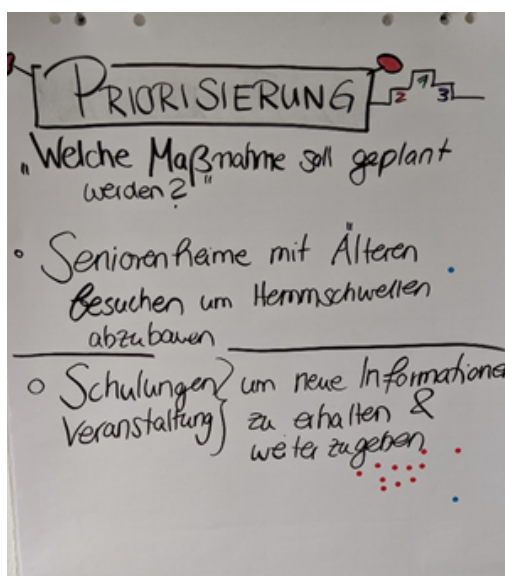 PRIORISIERUNG
2 1 3
„Welche Maßnahme soll geplant
werden?"
• Seniorenheime mit Älteren
Besuchen um Hemmschwellen
abzubauen
○ Schulungen } um neue Informatione
Veranstaltung } zu erhalten &
weiter zugeben